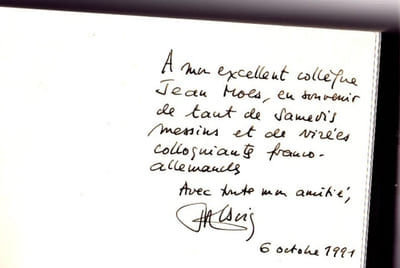 A mon excellent collègue
Jean Moes, en souvenir
de tant de samedis
messins et de virées
colloquiants franco-
allemands
Avec toute mon amitié,
6 octobre 1991